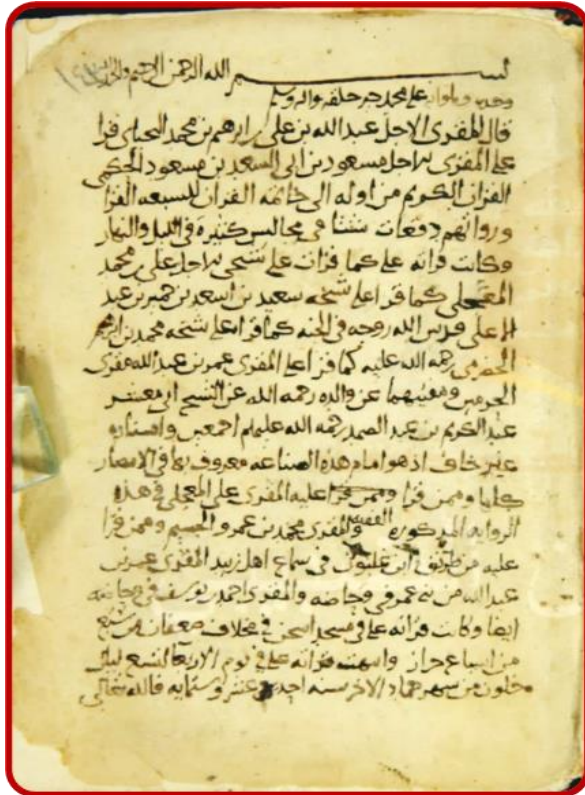 بسم الله الرحمن الرحيم
وصلواته على محمد خير خلقه واله وسلم
قال المقرى الاجل عبد الله بن علي بن ابرهيم بن محمد قرا
على المقرى الاجل مسعود بن ابي السعد بن مسعود الحكمي
القران الكريم من اوله الى خاتمه القران للسبعه القرا
ورواتهم دفعات شتتا في مجالس كثيرة في الليل والنهار
وكانت قراته علي كما قرات على شيخي الاجل علي بن محمد
كما قرا على شيخه سعيد بن اسعد بن حمير بن عبد
الاعلى قدس الله روحه في الجنه كما قرا على شيخه محمد بن ابرهيم
الحضرمي رحمه الله عليه كما قرا على المقرى عمر بن عبد الله مقرى
الحرمين ومفتيهما عن والده رحمه الله عن الشيخ ابي معشر
عبد الكريم بن عبد الصمد رحمة الله عليهم اجمعين واسناده
غير خاف اذ هو امام هذه الصناعه معروف بها في الامصار
كلها وممن قرا وممن قرا عليه المقرى علي في هذه
الروايه المذكوره الفقيه والمقرى محمد بن عمرو وممن قرا
عليه من طريق ابن غلبون في سماع اهل زبيد المقرى عمر بن
عبد الله من بني عمر في وحاضه والمقرى احمد بن يوسف في وحاضه
ايضا وكانت قراته علي في مسجد في مخلاف صعفان
من اسباع حراز وانتهت قراته علي في يوم الاربعا لتسع ليال
خلون من شهر جماد الاخر سنه احدى عشر وستمايه